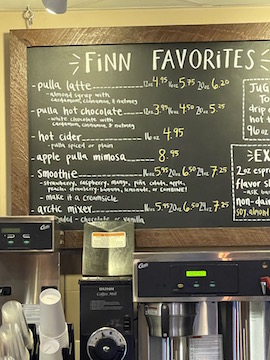 FINN FAVORITES
- pulla latte 12oz 4.95 16oz 5.75 20oz 6.20
- almond syrup with
cardamom, cinnamon, & nutmeg
- pulla hot chocolate 12oz 3.95 16oz 4.50 20oz 5.25
- white chocolate with
cardamom, cinnamon, & nutmeg
- hot cider 16oz 4.95
- pulla spiced or plain
- apple pulla mimosa 8.95
- smoothie 16oz 5.95 20oz 6.50 24oz 7.25
- strawberry, raspberry, mango, piña colada, apple,
peach, strawberry banana, lemonade, or COMBINE!
- make it a creamsicle
- arctic mixer 16oz 5.95 20oz 6.50 24oz 7.25
- chocolate or vanilla
JUG
TO
drip
hot
96 oz
EX
2oz esp
flavor s
- ask
non-dai
soy, almond
BUNN
Curtis
Curtis